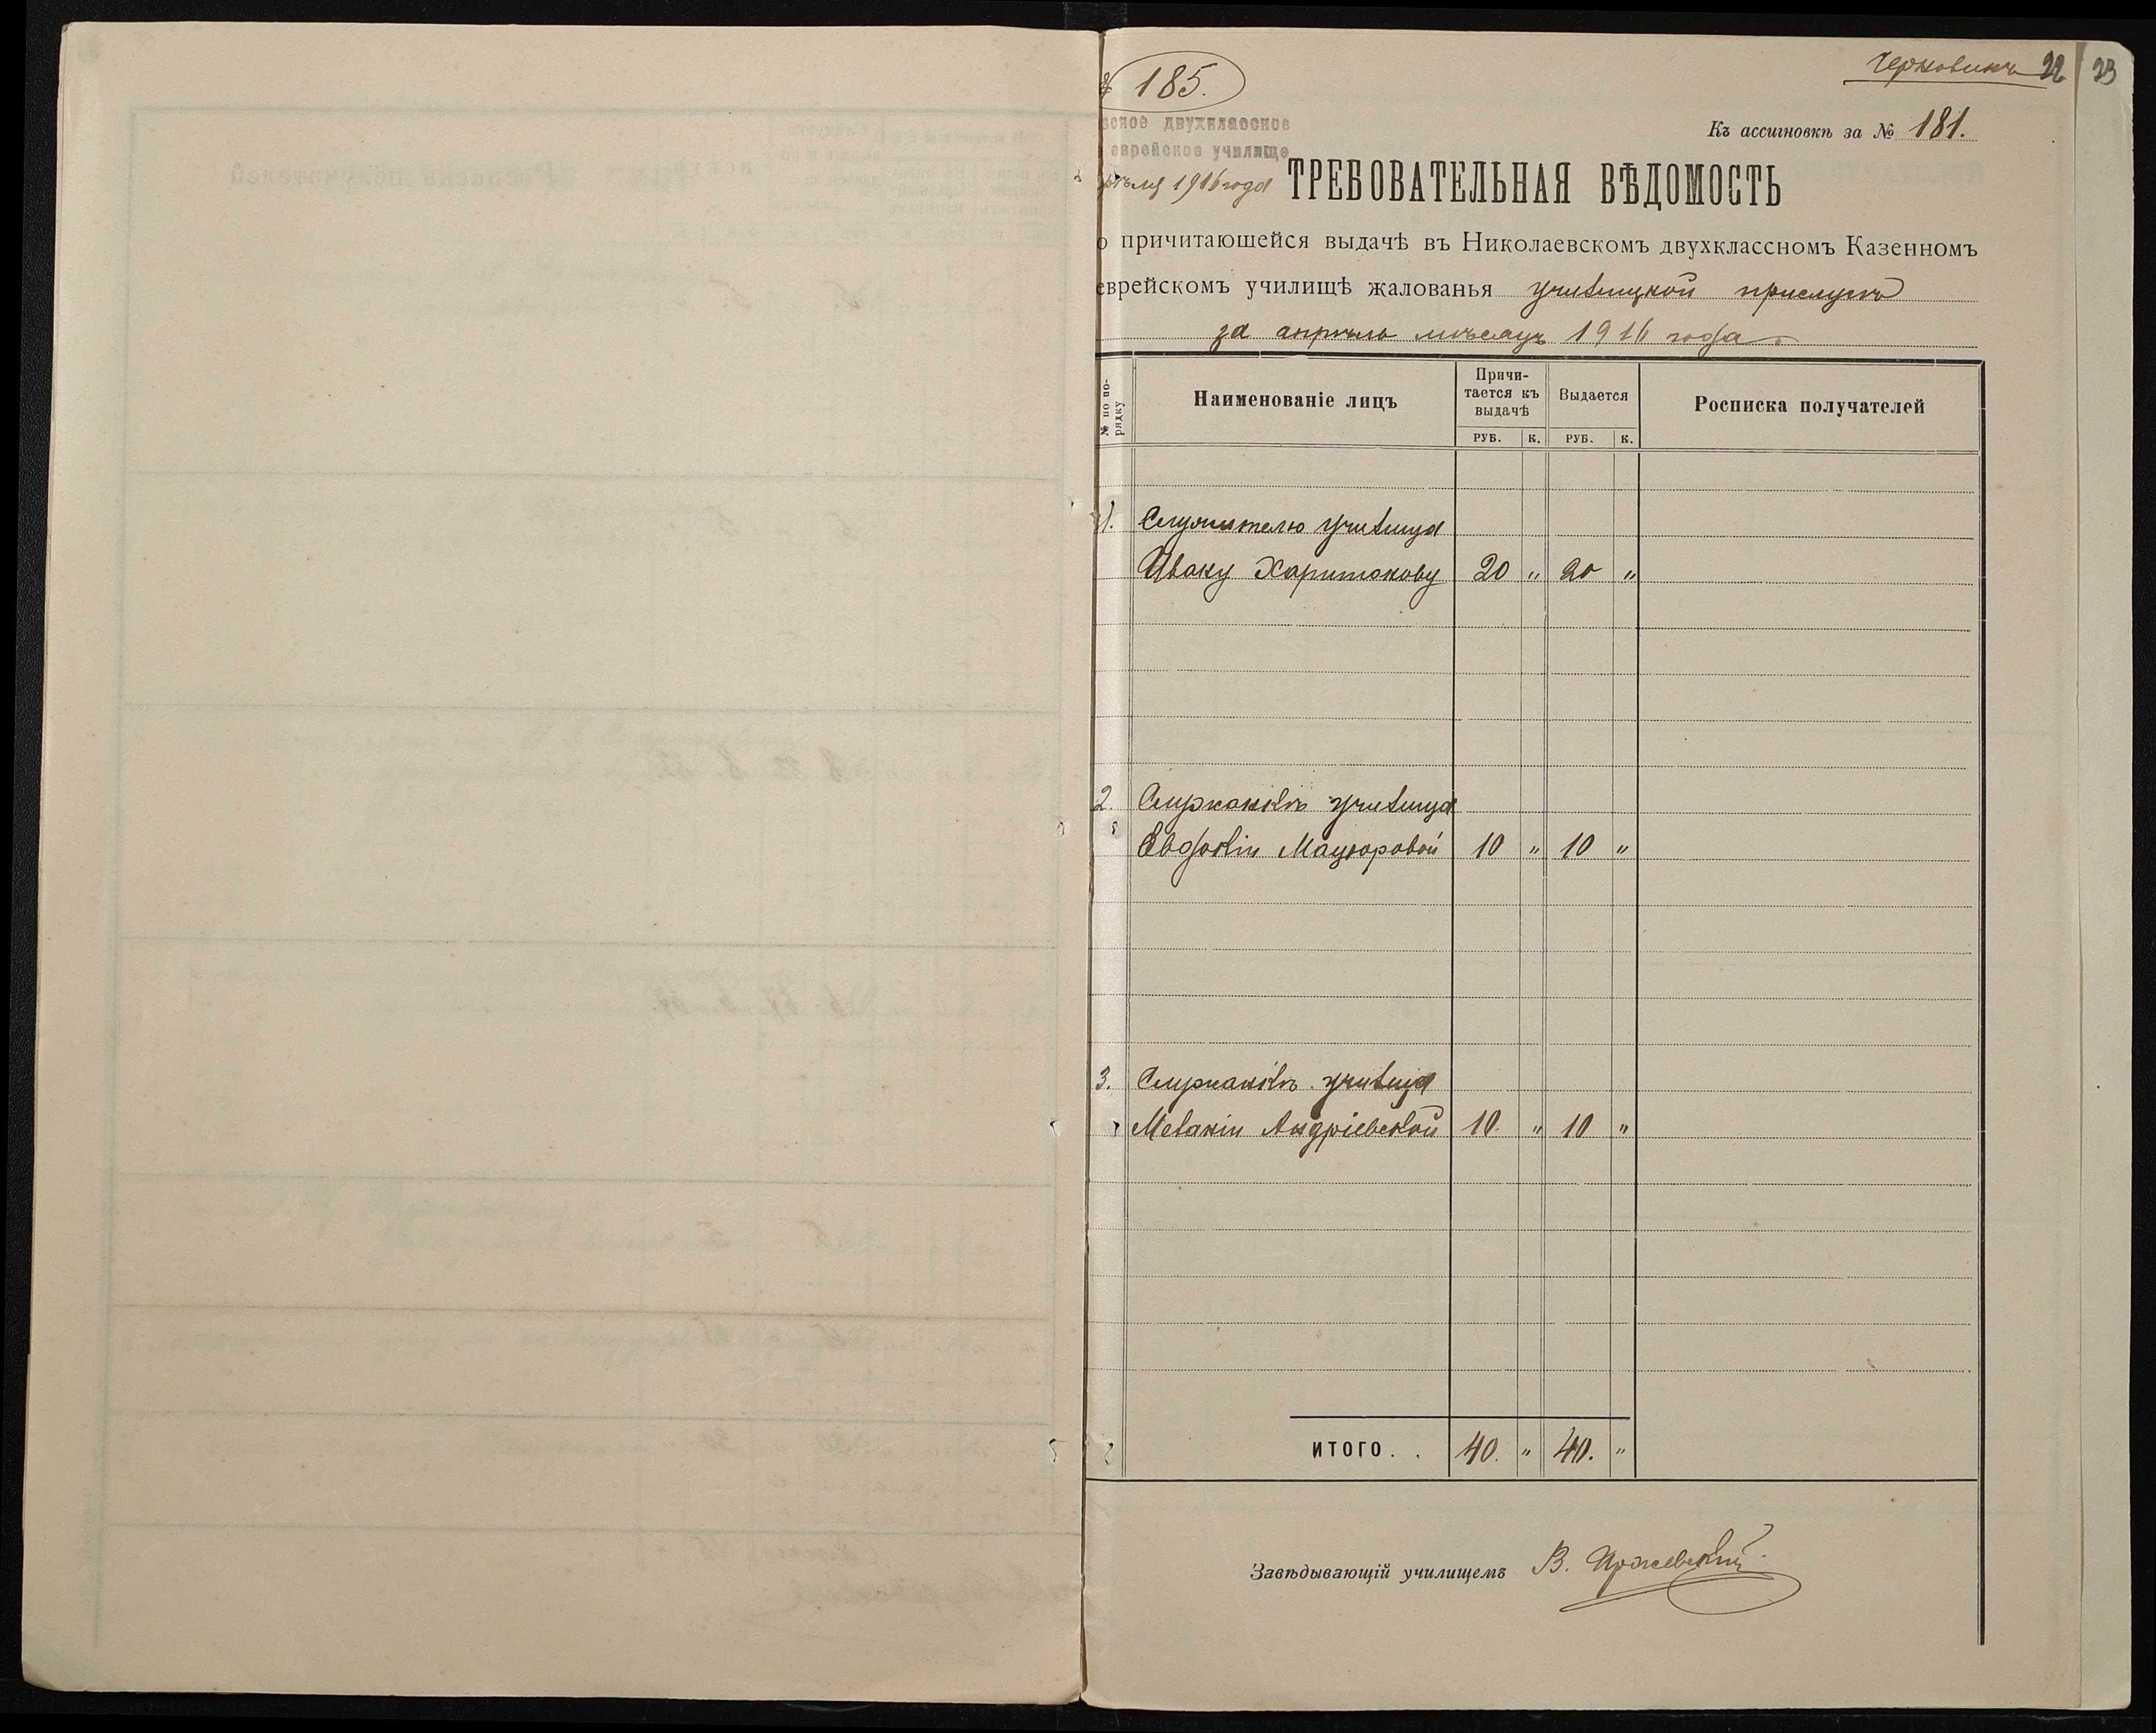 Черновикъ 22 23
№ 185.
Къ ассигновкѣ за № 181.
ское двухклассное
еврейское училище
апрѣля 1916 года
ТРЕБОВАТЕЛЬНАЯ ВѢДОМОСТЬ
о причитающейся выдачѣ въ Николаевскомъ двухклассномъ Казенномъ
еврейскомъ училищѣ жалованья училищной прислугѣ
за апрѣль мѣсяцъ 1916 года.
№ по по-
рядку
Наименованіе лицъ
Причи-
тается къ
выдачѣ
Выдается
Росписка получателей
РУБ. К. РУБ. К.
1. Служителю училища
Ивану Харитонову 20 " 20 "
2. Служанкѣ училища
Евдокіи Мацюровой 10 " 10 "
3. Служанкѣ училища
Меланіи Андріевской 10. " 10 "
ИТОГО. . 40. " 40. "
Завѣдывающій училищемъ В.